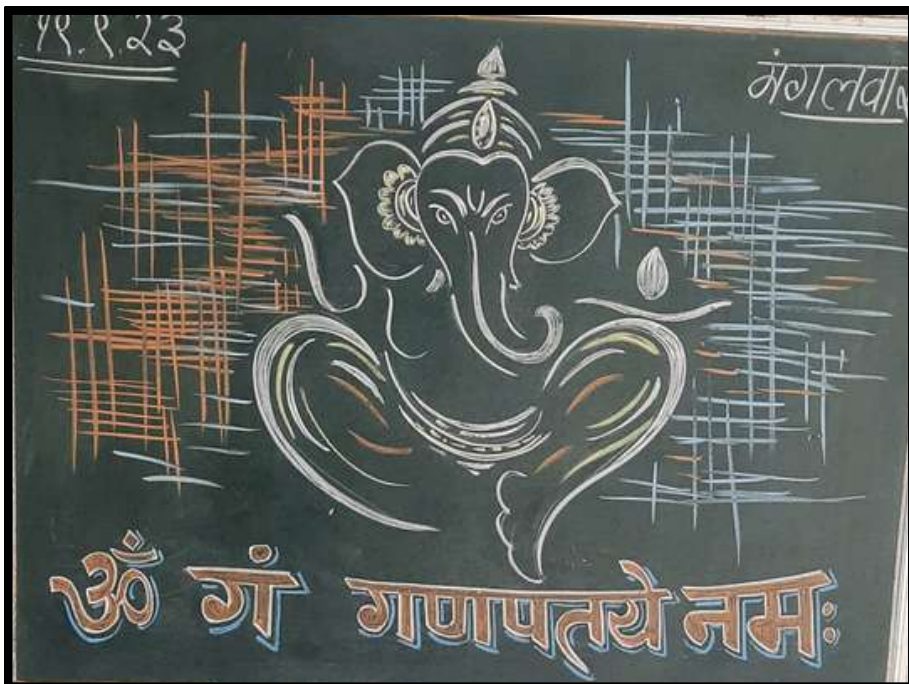 १९.९.२३
मंगलवार
ॐ गं गणपतये नमः